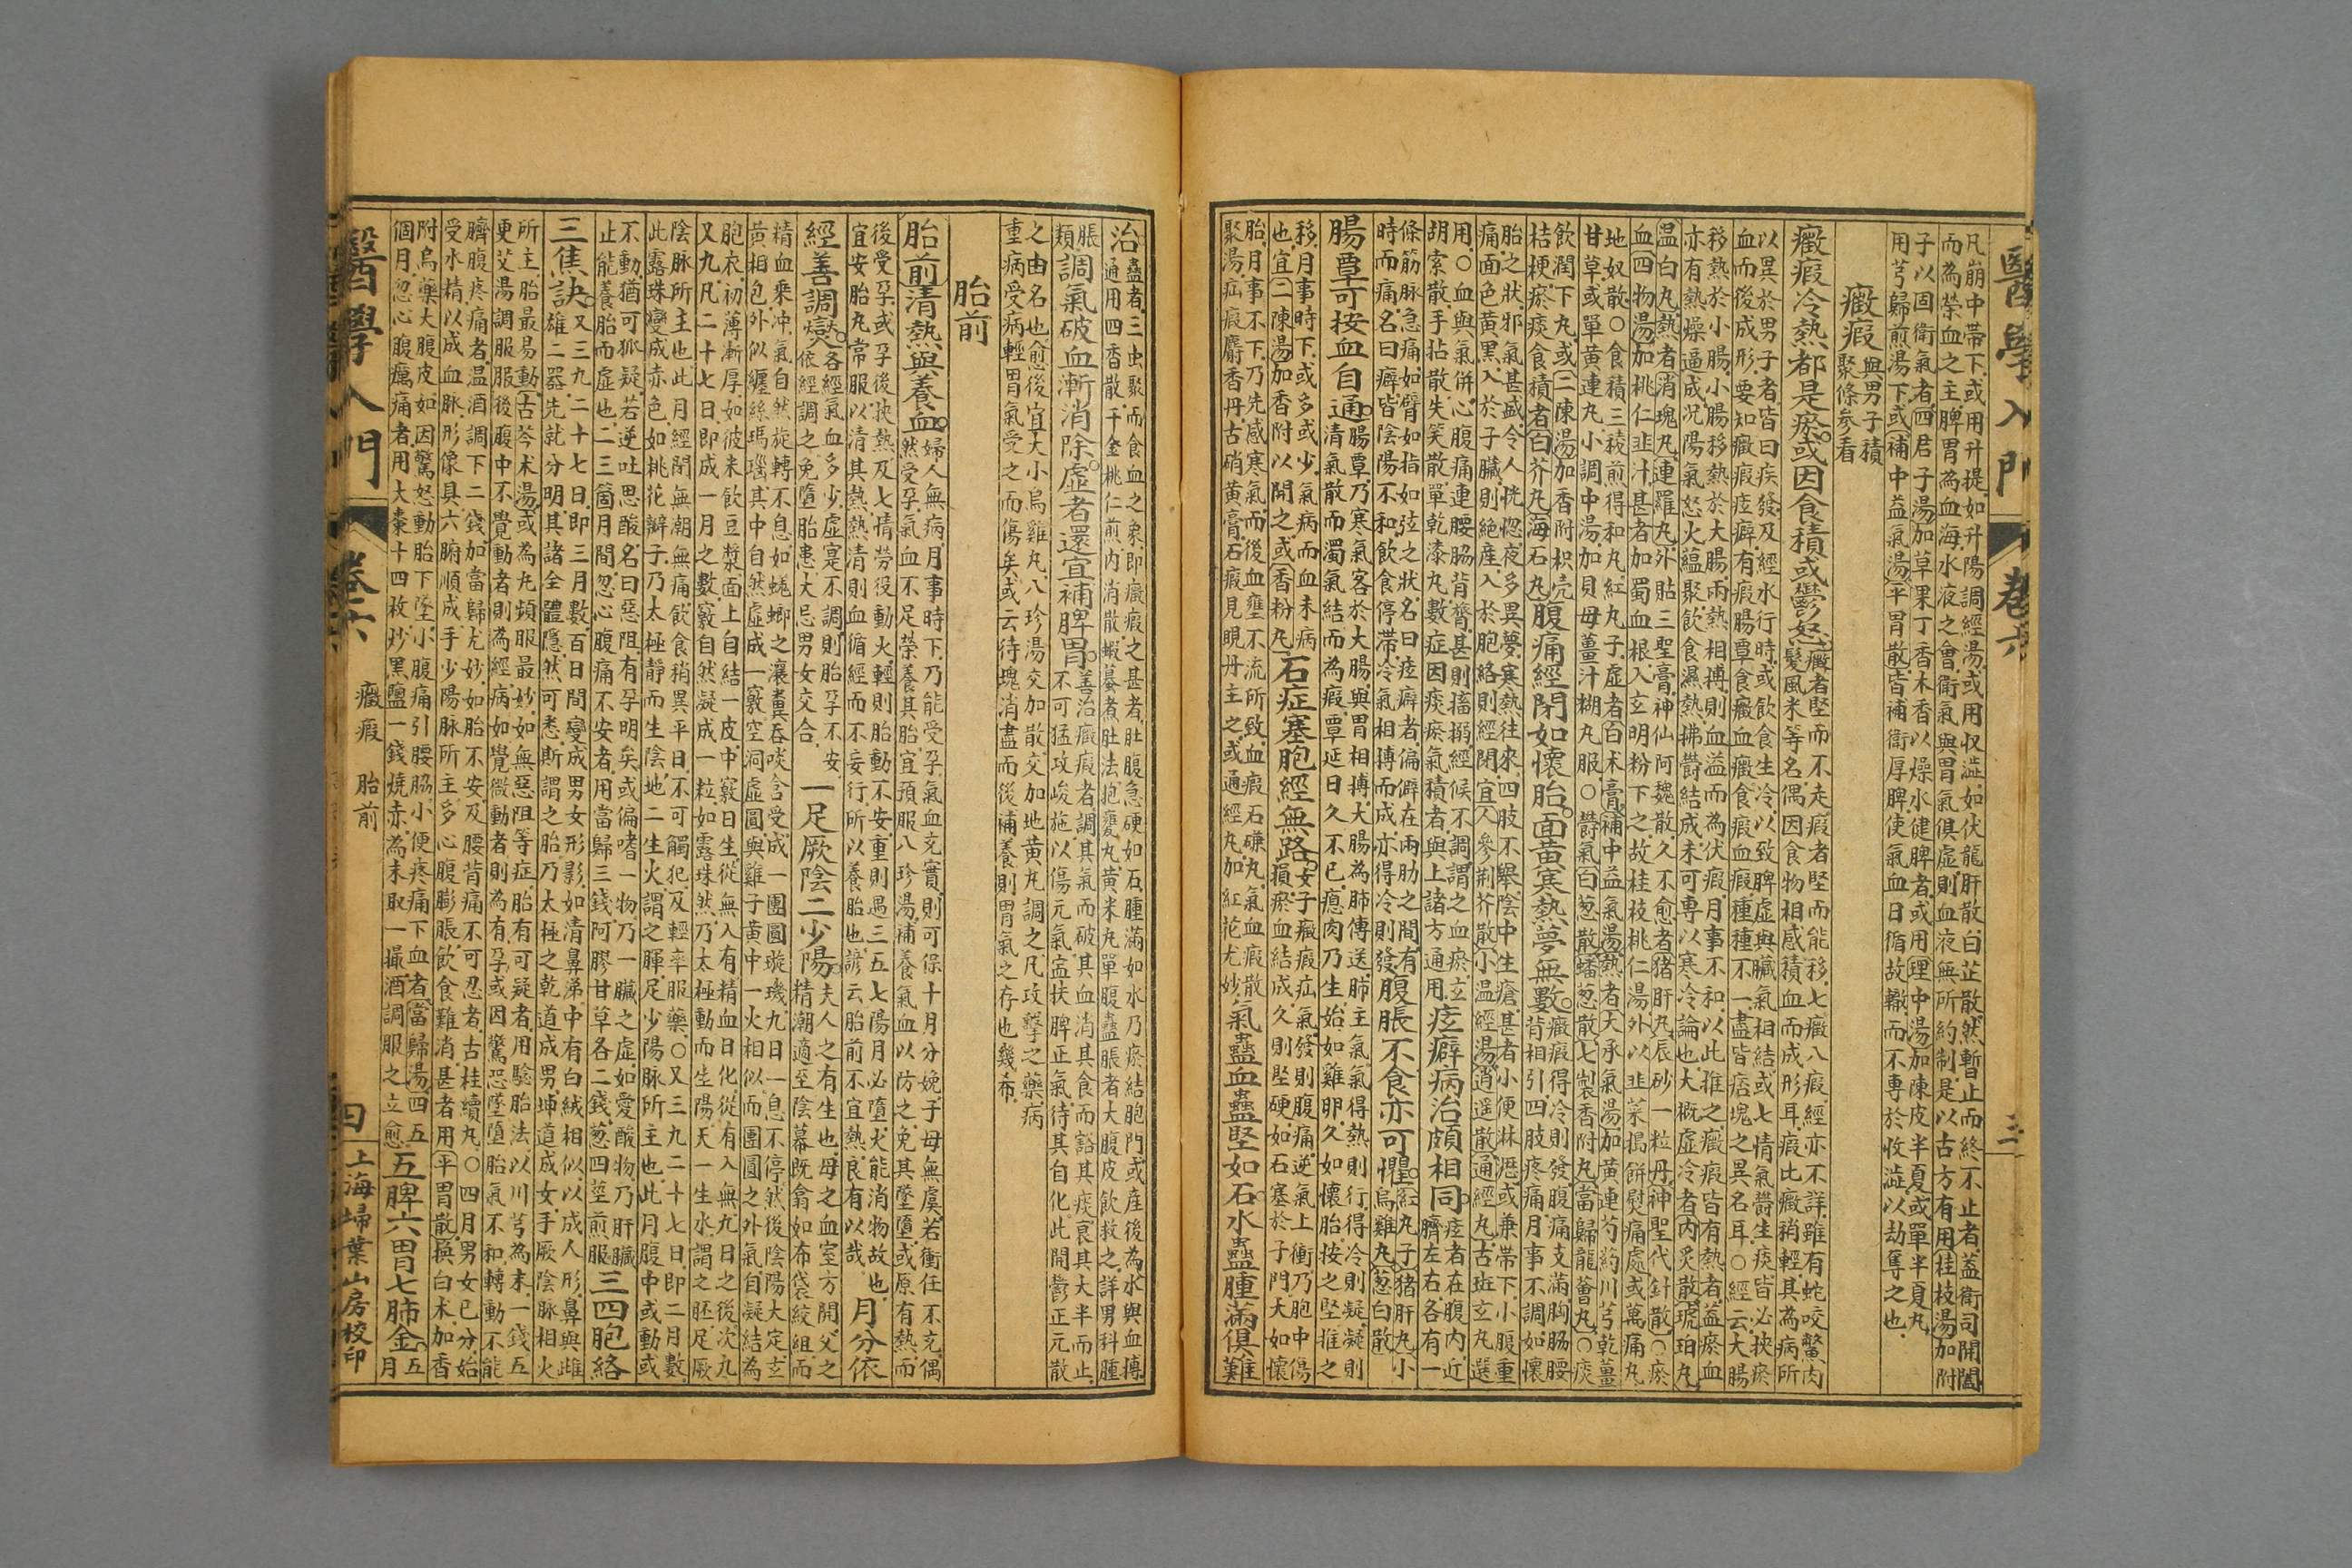 醫學入門 卷六 三
凡崩中帶下或用升提如升陽調經湯或用收澁如伏龍肝散白芷散然暫止而終不止者蓋衛司開闔
而為榮血之主脾胃為血海水液之會衛氣與胃氣俱虛則血液無所約制是以古方有用桂枝湯加附
子以固衛氣者四君子湯加草果丁香木香以燥水健脾者或用理中湯加陳皮半夏或單半夏丸
用芎歸煎湯下或補中益氣湯平胃散皆補衛厚脾使氣血日循故轍而不專於收澁以劫奪之也
癥瘕與男子積聚條參看
癥瘕冷熱都是瘀或因食積或鬱怒
癥者堅而不走瘕者堅而能移七癥八瘕經亦不詳雖有蛇咬鱉肉
髮風米等名偶因食物相感積血而成形耳瘕比癥稍輕其為病所
以異於男子者皆曰疾發及經水行時或飲食生冷以致脾虛與臟氣相結或七情氣鬱生痰皆必挾瘀
血而後成形要知癥瘕痃癖有瘕腸覃食癥血癥食瘕血瘕種種不一盡皆痞塊之異名耳○經云大腸
移熱於小腸小腸移熱於大腸兩熱相搏則血溢而為伏瘕月事不和以此推之癥瘕皆有熱者益瘀血
亦有熱燥逼成况陽氣怒火蘊聚飲食濕熱拂鬱結成未可專以寒冷論也大概虛冷者內炙散琥珀丸
温白丸熱者消塊丸連蘿丸外貼三聖膏神仙阿魏散久不愈者猪肝丸辰砂一粒丹神聖代針散○瘀
血四物湯加桃仁韭汁甚者加蜀血根入玄明粉下之故桂枝桃仁湯外以韭菜搗餅熨痛處或萬痛丸
地奴散○食積三稜煎得和丸紅丸子虛者白术膏補中益氣湯熱者大承氣湯加黃連芍藥川芎乾薑
甘草或單黃連丸小調中湯加貝母薑汁糊丸服○鬱氣白葱散蟠葱散七製香附丸當歸龍薈丸○痰
飲潤下丸或二陳湯加香附枳壳
桔梗瘀痰食積者白芥丸海石丸
腹痛經閉如懷胎面黃寒熱夢無數
癥瘕得冷則發腹痛支滿胸腸腰
背相引四肢疼痛月事不調如懷
胎之狀邪氣甚盛令人恍惚夜多異夢寒熱往來四肢不舉陰中生瘡甚者小便淋瀝或兼帶下小腹重
痛面色黃黑入於子臟則絶産入於胞絡則經閉宜人參荆芥散小温經湯逍遥散通經丸古斑玄丸選
用○血與氣併心腹痛連腰脇背膂甚則搐搦經候不調謂之血瘀玄
胡索散手拈散失笑散單乾漆丸數症因痰瘀氣積者與上諸方通用
痃癖病治頗相同
痃者在腹內近
臍左右各有一
條筋脉急痛如臂如指如弦之狀名曰痃癖者偏僻在兩肋之間有
時而痛名曰癖皆陰陽不和飲食停滯冷氣相搏而成亦得冷則發
腹脹不食亦可懼
烏雞丸葱白散
紅丸子猪肝丸小
腸覃可按血自通
腸覃乃寒氣客於大腸與胃相搏大腸為肺傳送肺主氣氣得熱則行得冷則凝凝則
清氣散而濁氣結而為瘕覃延日久不已瘜肉乃生始如雞卵久如懷胎按之堅推之
移月事時下或多或少氣病而血未病
也宜二陳湯加香附以開之或香粉丸
石症塞胞經無路
女子癥瘕疝氣發則腹痛逆氣上衝乃胞中傷
損瘀血結成久則堅硬如石塞於子門大如懷
胎月事不下乃先感寒氣而後血壅不流所致血瘕石磏丸氣血瘕散
聚湯疝瘕麝香丹古硝黃膏石瘕見晛丹主之或通經丸加紅花尤妙
氣蠱血蠱堅如石水蠱腫滿俱難
治
蠱者三虫聚而食血之象即癥瘕之甚者肚腹急硬如石腫滿如水乃瘀結胞門或産後為水與血搏
通用四香散千金桃仁煎內消散蝦蟇煮肚法抱甕丸黃米丸單腹蠱脹者大腹皮飲救之詳男科腫
脹類
調氣破血漸消除虛者還宜補脾胃
善治癥瘕者調其氣而破其血消其食而豁其痰衰其大半而止
不可猛攻峻施以傷元氣寍扶脾正氣待其自化此開鬱正元散
之由名也愈後宜大小烏雞丸八珍湯交加散交加地黃丸調之凡攻擊之藥病
重病受病輕胃氣受之而傷矣或云待塊消盡而後補養則胃氣之存也幾希
胎前
胎前清熱與養血
婦人無病月事時下乃能受孕氣血充實則可保十月分娩子母無虞若衝任不充偶
然受孕氣血不足榮養其胎宜預服八珍湯補養氣血以防之免其墜墮或原有熱而
後受孕或孕後挾熱及七情勞役動火輕則胎動不安重則遇三五七陽月必墮火能消物故也
宜安胎丸常服以清其熱熱清則血循經而不妄行所以養胎也諺云胎前不宜熱良有以哉
月分依
經善調爕
各經氣血多少虛寔不調則胎孕不安
依經調之免墮胎患大忌男女交合
一足厥陰二少陽
夫人之有生也母之血室方開父之
精潮適至陰幕既翕如布袋絞組而
精血乘冲氣自然旋轉不息如蜣螂之瀼糞吞啖含受成一團圓璇璣九日一息不停然後陰陽大定玄
黃相包外似纏絲瑪瑙其中自然虛成一竅空洞虛圓與雞子黃中一火相似而團圓之外氣自凝結為
胞衣初薄漸厚如彼米飲豆漿面上自結一皮中竅日生從無入有精血日化從有入無九日之後次九
又九凡二十七日即成一月之數竅自然凝成一粒如露珠然乃太極動而生陽天一生水謂之胚足厥
陰脉所主也此月經閉無潮無痛飲食稍異平日不可觸犯及輕率服藥○又三九二十七日即二月數
此露珠變成赤色如桃花瓣子乃太極靜而生陰地二生火謂之䐇足少陽脉所主也此月腹中或動或
不動猶可狐疑若逆吐思酸名曰惡阻有孕明矣或偏嗜一物乃一臟之虛如愛酸物乃肝臟
止能養胎而虛也一二三箇月間忽心腹痛不安者用當歸三錢阿膠甘草各二錢葱四莖煎服
三四胞絡
三焦訣
又三九二十七日即三月數百日間變成男女形影如清鼻涕中有白絨相似以成人形鼻與雌
雄二器先就分明其諸全體隱然可悉斯謂之胎乃太極之乾道成男坤道成女手厥陰脉相火
所主胎最易動古芩术湯或為丸頻服最妙如無惡阻等症胎有可疑者用驗胎法以川芎為末一錢五
更艾湯調服服後腹中不覺動者則為經病如覺微動者則為有孕或因驚恐墜墮胎氣不和轉動不能
臍腹疼痛者温酒調下二錢加當歸尤妙如胎不安及腰背痛不可忍者古桂續丸○四月男女已分始
受水精以成血脉形像具六腑順成手少陽脉所主多心腹膨脹飲食難消甚者用平胃散換白术加香
附烏藥大腹皮如因驚怒動胎下墜小腹痛引腰脇小便疼痛下血者當歸湯四五
個月忽心腹癘痛者用大棗十四枚炒黑鹽一錢燒赤為末取一撮酒調服之立愈
五脾六胃七肺金
五
月
醫學入門 卷六 癥瘕 胎前 四 上海埽葉山房校印